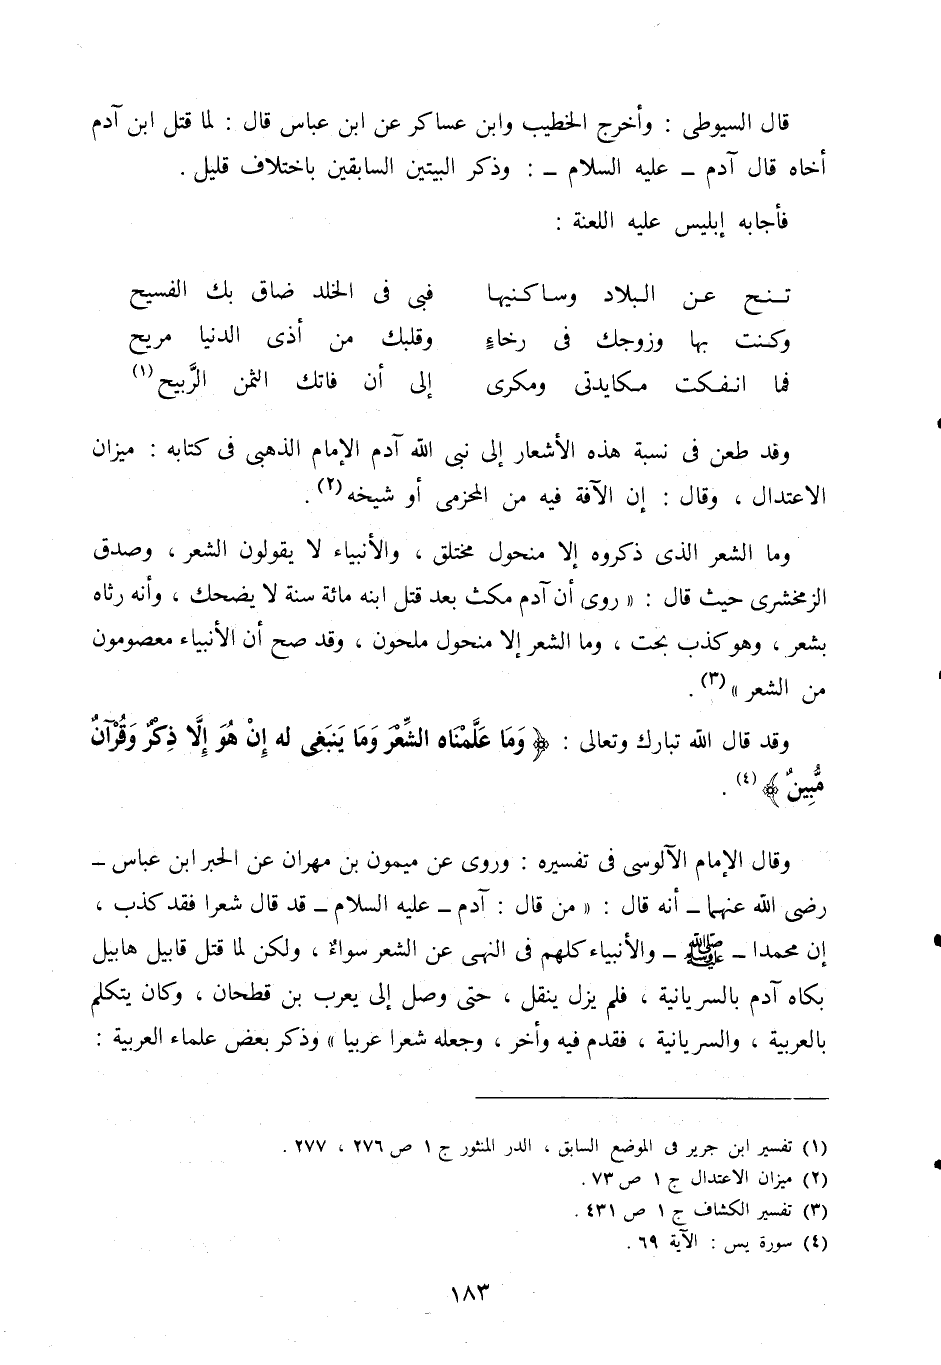 قال السيوطى : وأخرج الخطيب وابن عساكر عن ابن عباس قال : لما قتل ابن آدم
أخاه قال آدم ــ عليه السلام ــ : وذكر البيتين السابقين باختلاف قليل .
فأجابه إبليس عليه اللعنة :
تنح عن البلاد وساكنيها فبى فى الخلد ضاق بك الفسيح
وكنت بها وزوجك فى رخاءٍ وقلبك من أذى الدنيا مريح
فما انفكت مكايدتى ومكرى إلى أن فاتك الثمن الرَّبيح (١)
وقد طعن فى نسبة هذه الأشعار إلى نبى الله آدم الإمام الذهبى فى كتابه : ميزان
الاعتدال ، وقال : إن الآفة فيه من المخزمى أو شيخه (٢) .
وما الشعر الذى ذكروه إلا منحول مختلق ، والأنبياء لا يقولون الشعر ، وصدق
الزمخشرى حيث قال : « روى أن آدم مكث بعد قتل ابنه مائة سنة لا يضحك ، وأنه رثاه
بشعر ، وهو كذب بحت ، وما الشعر إلا منحول ملحون ، وقد صح أن الأنبياء معصومون
من الشعر » (٣) .
وقد قال الله تبارك وتعالى : ﴿ وَمَا عَلَّمْنَاه الشِّعْرَ وَمَا يَنبَغِى له إِنْ هُوَ إِلَّا ذِكْرٌ وَقُرْآنٌ
مُّبِينٌ ﴾ (٤) .
وقال الإمام الآلوسى فى تفسيره : وروى عن ميمون بن مهران عن الحبر ابن عباس ــ
رضى الله عنهما ــ أنه قال : « من قال : آدم ــ عليه السلام ــ قد قال شعرا فقد كذب ،
إن محمدا ــ ﷺ ــ والأنبياء كلهم فى النهى عن الشعر سواءٌ ، ولكن لما قتل قابيل هابيل
بكاه آدم بالسريانية ، فلم يزل ينقل ، حتى وصل إلى يعرب بن قطحان ، وكان يتكلم
بالعربية ، والسريانية ، فقدم فيه وأخر ، وجعله شعرا عربيا » وذكر بعض علماء العربية :
(١) تفسير ابن جرير فى الموضع السابق ، الدر المنثور ج ١ ص ٢٧٦ ، ٢٧٧ .
(٢) ميزان الاعتدال ج ١ ص ٧٣ .
(٣) تفسير الكشاف ج ١ ص ٤٣١ .
(٤) سورة يس : الآية ٦٩ .
١٨٣